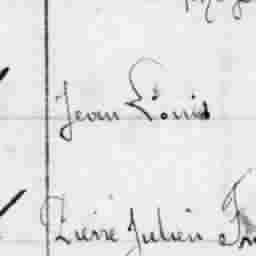 Jean Louis
Pierre Julien